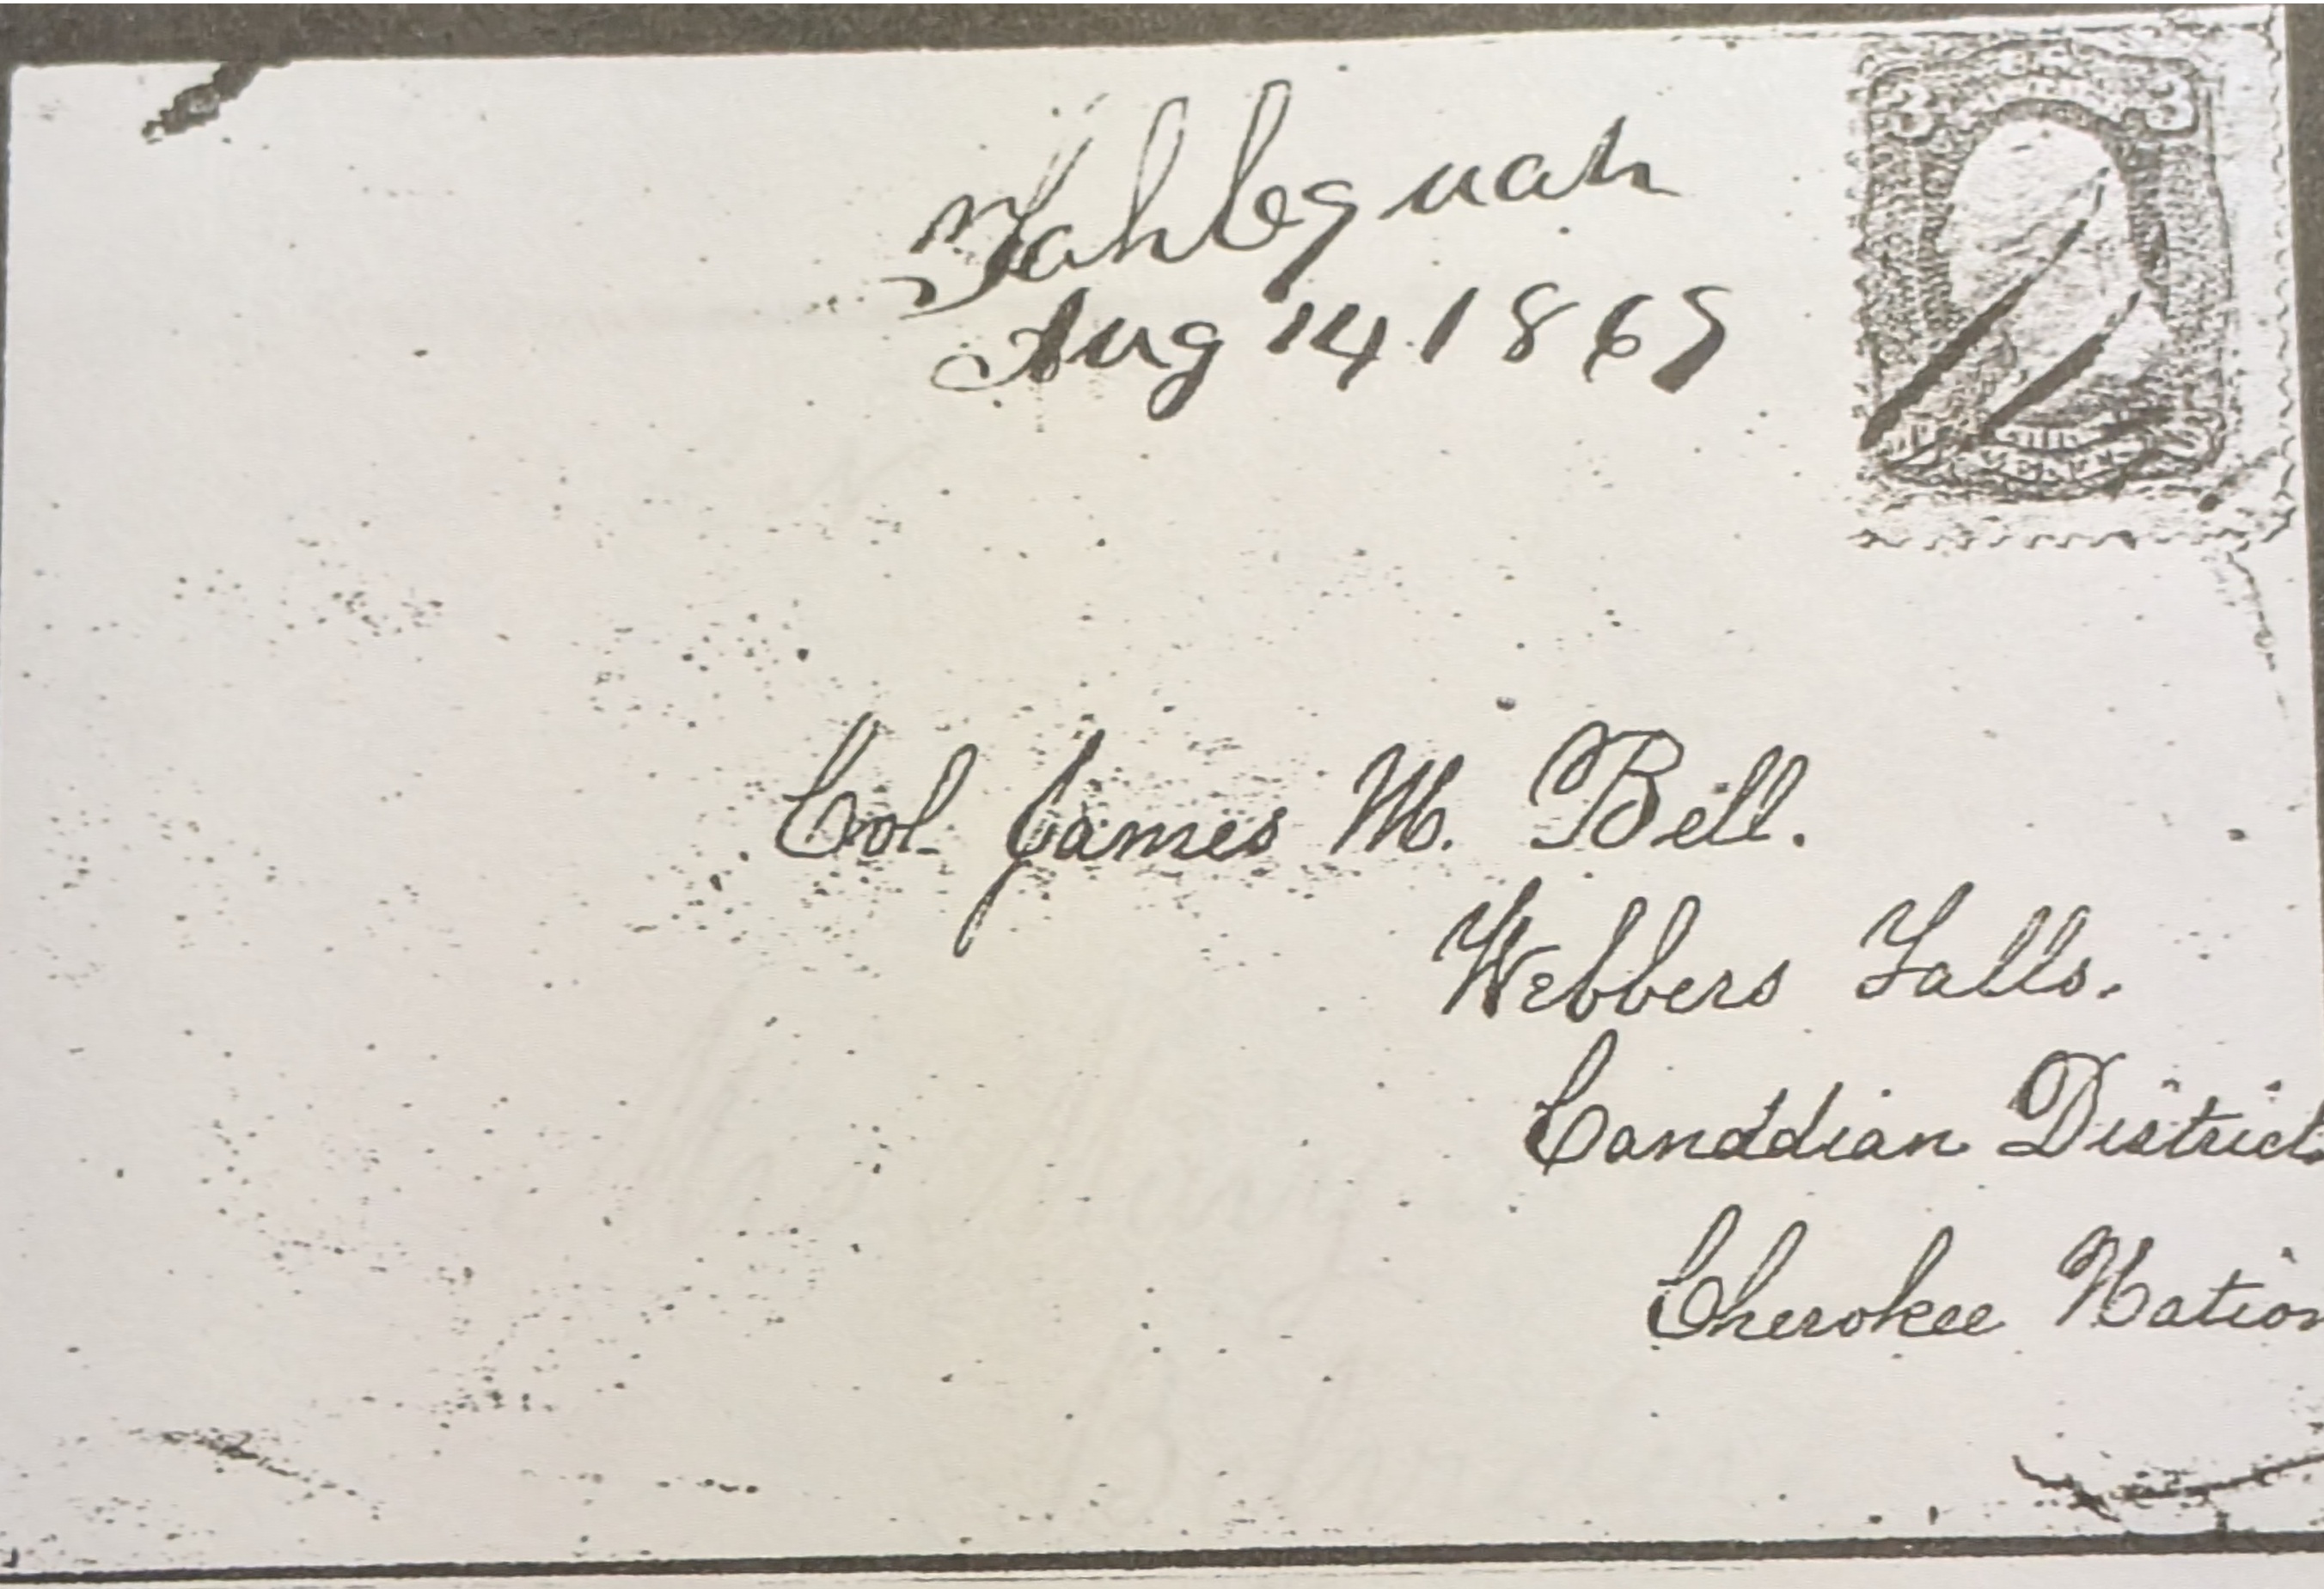 Tahlequah
Aug 14, 1869
3 3
Col. James M. Bell.
Webbers Falls.
Canddian District
Cherokee Nation